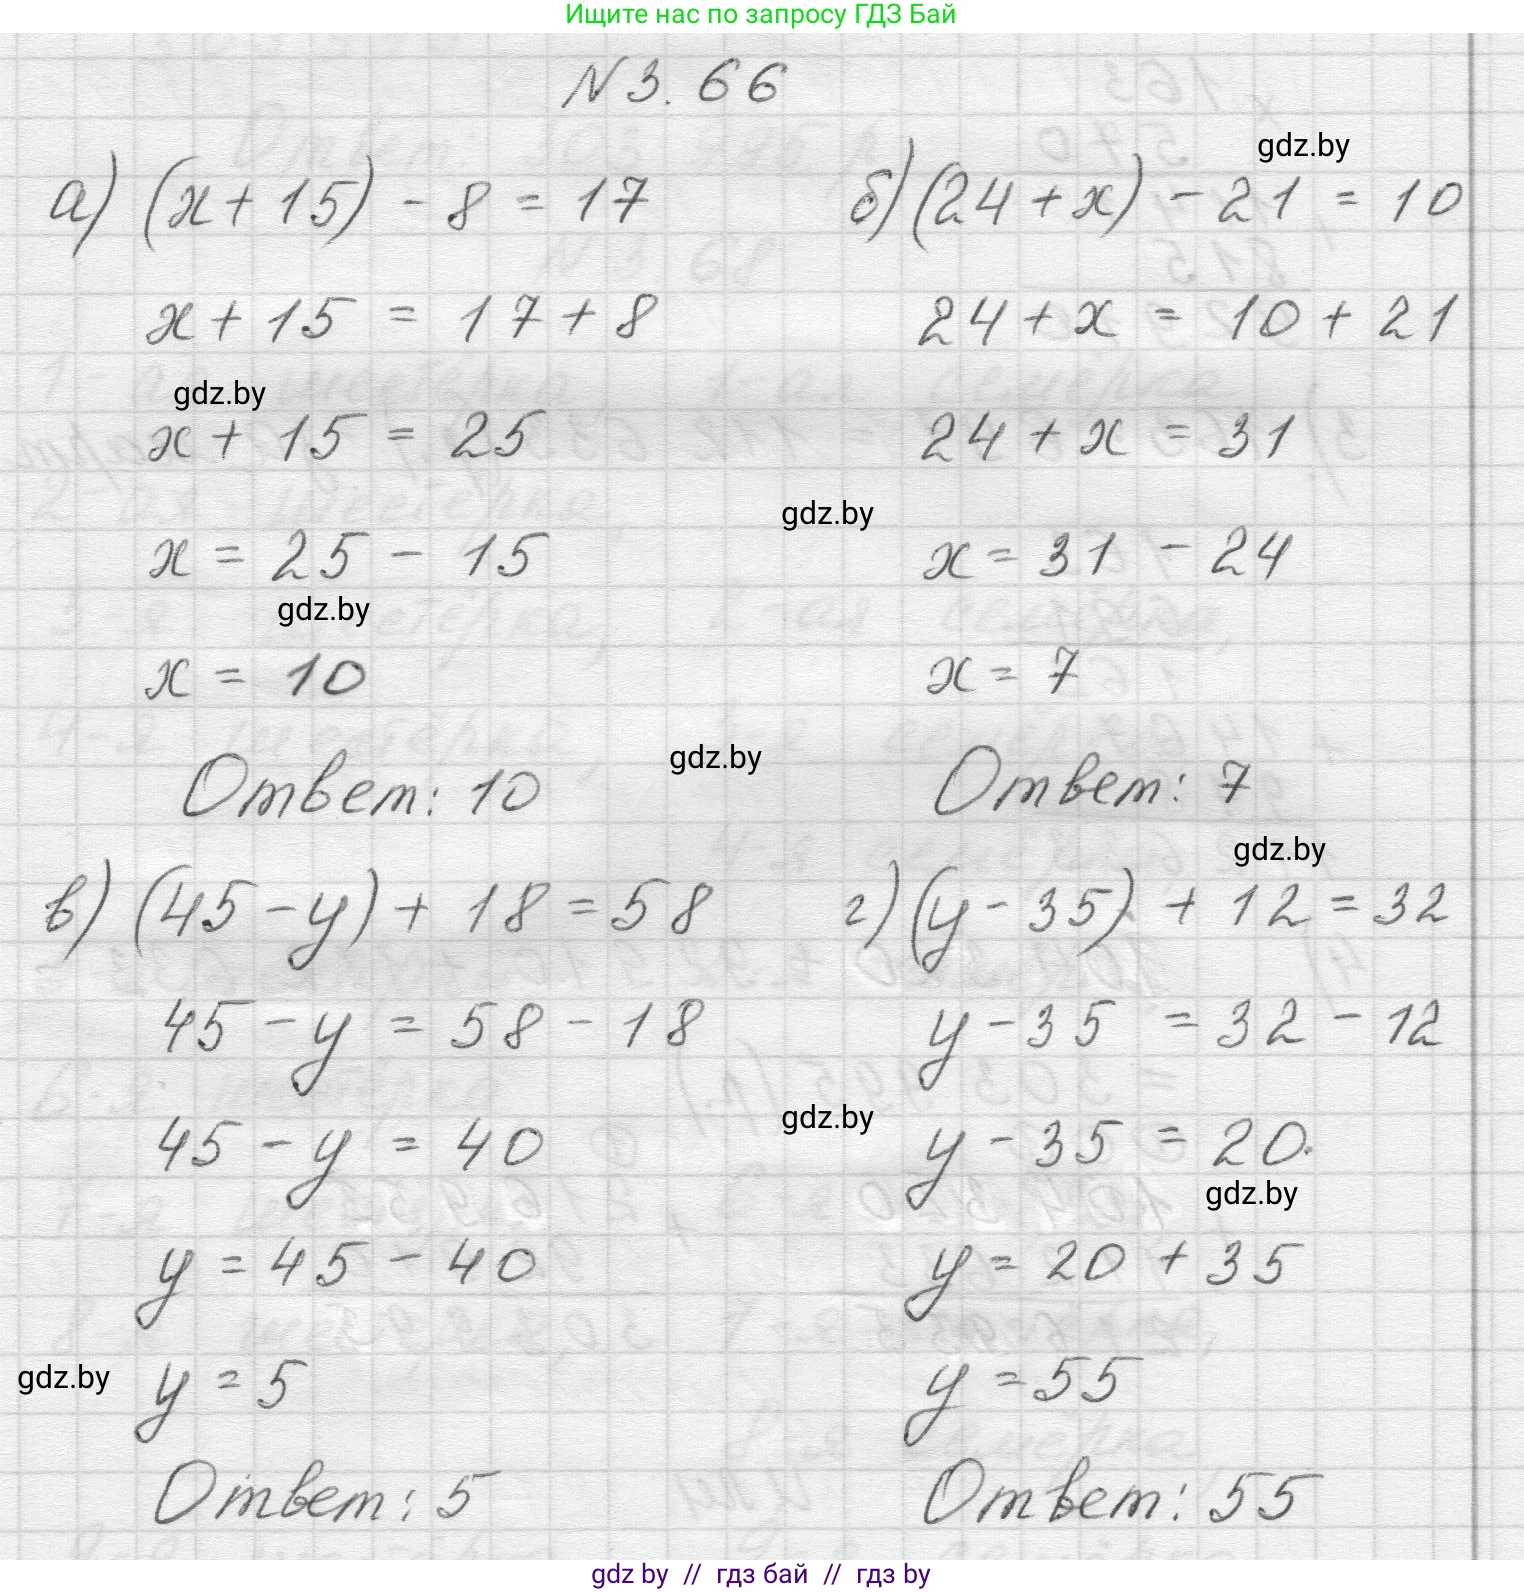 Ищите нас по запросу ГДЗ Бай
N 3. 66
а) (x + 15) - 8 = 17
x + 15 = 17 + 8
gdz.by
x + 15 = 25
x = 25 - 15
gdz.by
x = 10
Ответ: 10
gdz.by
б) (24 + x) - 21 = 10
24 + x = 10 + 21
24 + x = 31
gdz.by
x = 31 - 24
x = 7
gdz.by
Ответ: 7
в) (45 - y) + 18 = 58
45 - y = 58 - 18
45 - y = 40
y = 45 - 40
gdz.by
y = 5
Ответ: 5
gdz.by
г) (y - 35) + 12 = 32
y - 35 = 32 - 12
gdz.by
y - 35 = 20.
gdz.by
y = 20 + 35
y = 55
Ответ: 55
gdz by // гдз бай // гдз by